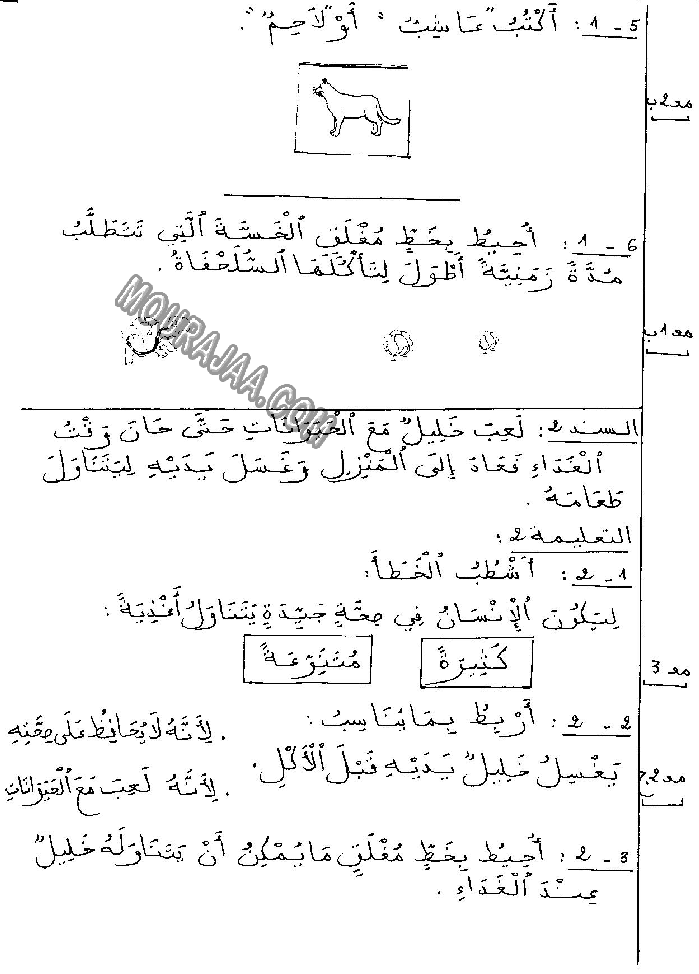 1 - 5 : أَكْتُبُ "عَاشِبٌ" أَوْ "لَاحِمٌ".
مع2ب
1 - 6 : أُحِيطُ بِخَطٍّ مُغْلَقٍ ٱلْخَسَّةَ ٱلَّتِي تَتَطَلَّبُ
مُدَّةً زَمَنِيَّةً أَطْوَلَ لِتَأْكُلَهَا ٱلسُّلَحْفَاةُ.
مع1ب
MOURAJAA.COM
السند 2: لَعِبَ خَلِيلٌ مَعَ ٱلْحَيَوَانَاتِ حَتَّى حَانَ وَقْتُ
ٱلْغَدَاءِ فَعَادَ إِلَى ٱلْمَنْزِلِ وَغَسَلَ يَدَيْهِ لِيَتَنَاوَلَ
طَعَامَهُ.
التعليمة 2:
2 - 1 : أَشْطُبُ ٱلْخَطَأَ:
لِيَكُونَ ٱلْإِنْسَانُ فِي صِحَّةٍ جَيِّدَةٍ يَتَنَاوَلُ أَغْذِيَةً:
كَثِيرَةً
مُتَنَوِّعَةً
مع 3
2 - 2 : أَرْبِطُ بِمَا يُنَاسِبُ:
. لِأَنَّهُ لَا يُحَافِظُ عَلَى صِحَّتِهِ
يَغْسِلُ خَلِيلٌ يَدَيْهِ قَبْلَ ٱلْأَكْلِ.
. لِأَنَّهُ لَعِبَ مَعَ ٱلْحَيَوَانَاتِ
مع2ج
2 - 3 : أُحِيطُ بِخَطٍّ مُغْلَقٍ مَا يُمْكِنُ أَنْ يَتَنَاوَلَهُ خَلِيلٌ
عِنْدَ ٱلْغَدَاءِ.